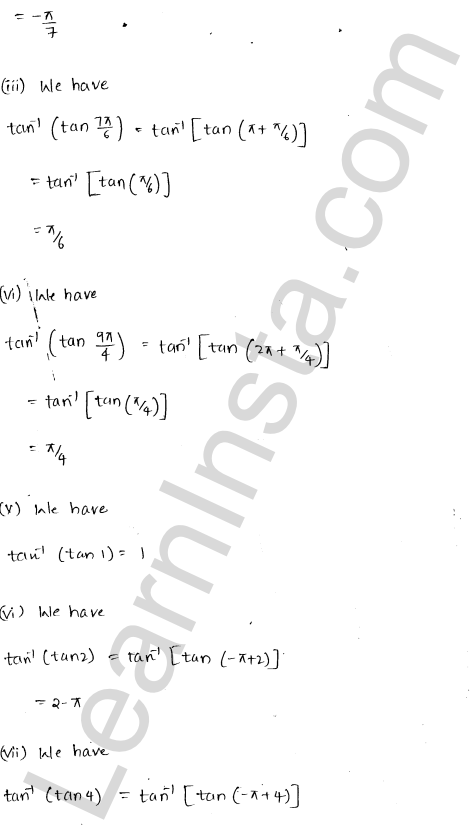 = -π/7
(iii) We have
tan⁻¹ (tan 7π/6) = tan⁻¹ [tan (π + π/6)]
= tan⁻¹ [tan (π/6)]
= π/6
(vi) We have
tan⁻¹ (tan 9π/4) = tan⁻¹ [tan (2π + π/4)]
= tan⁻¹ [tan (π/4)]
= π/4
(v) We have
tan⁻¹ (tan 1) = 1
(vi) We have
tan⁻¹ (tan2) = tan⁻¹ [tan (-π+2)]
= 2-π
(vii) We have
tan⁻¹ (tan 4) = tan⁻¹ [tan (-π+4)]
LearnInsta.com